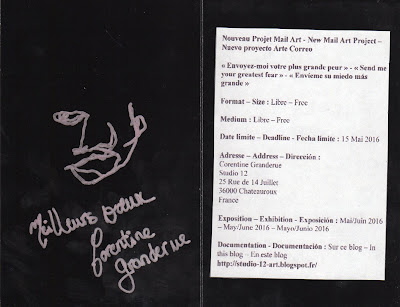 Meilleurs voeux
Corentine
Granderue
Nouveau Projet Mail Art - New Mail Art Project –
Nuevo proyecto Arte Correo
« Envoyez-moi votre plus grande peur » - « Send me
your greatest fear » - « Envieme su miedo más
grande »
Format – Size : Libre – Free
Medium : Libre – Free
Date limite – Deadline - Fecha limite : 15 Mai 2016
Adresse – Address – Dirección :
Corentine Granderue
Studio 12
25 Rue de 14 Juillet
36000 Chateauroux
France
Exposition – Exhibition - Exposición : Mai/Juin 2016
– May/June 2016 – Mayo/Junio 2016
Documentation - Documentación : Sur ce blog – In
this blog – En este blog
http://studio-12-art.blogspot.fr/